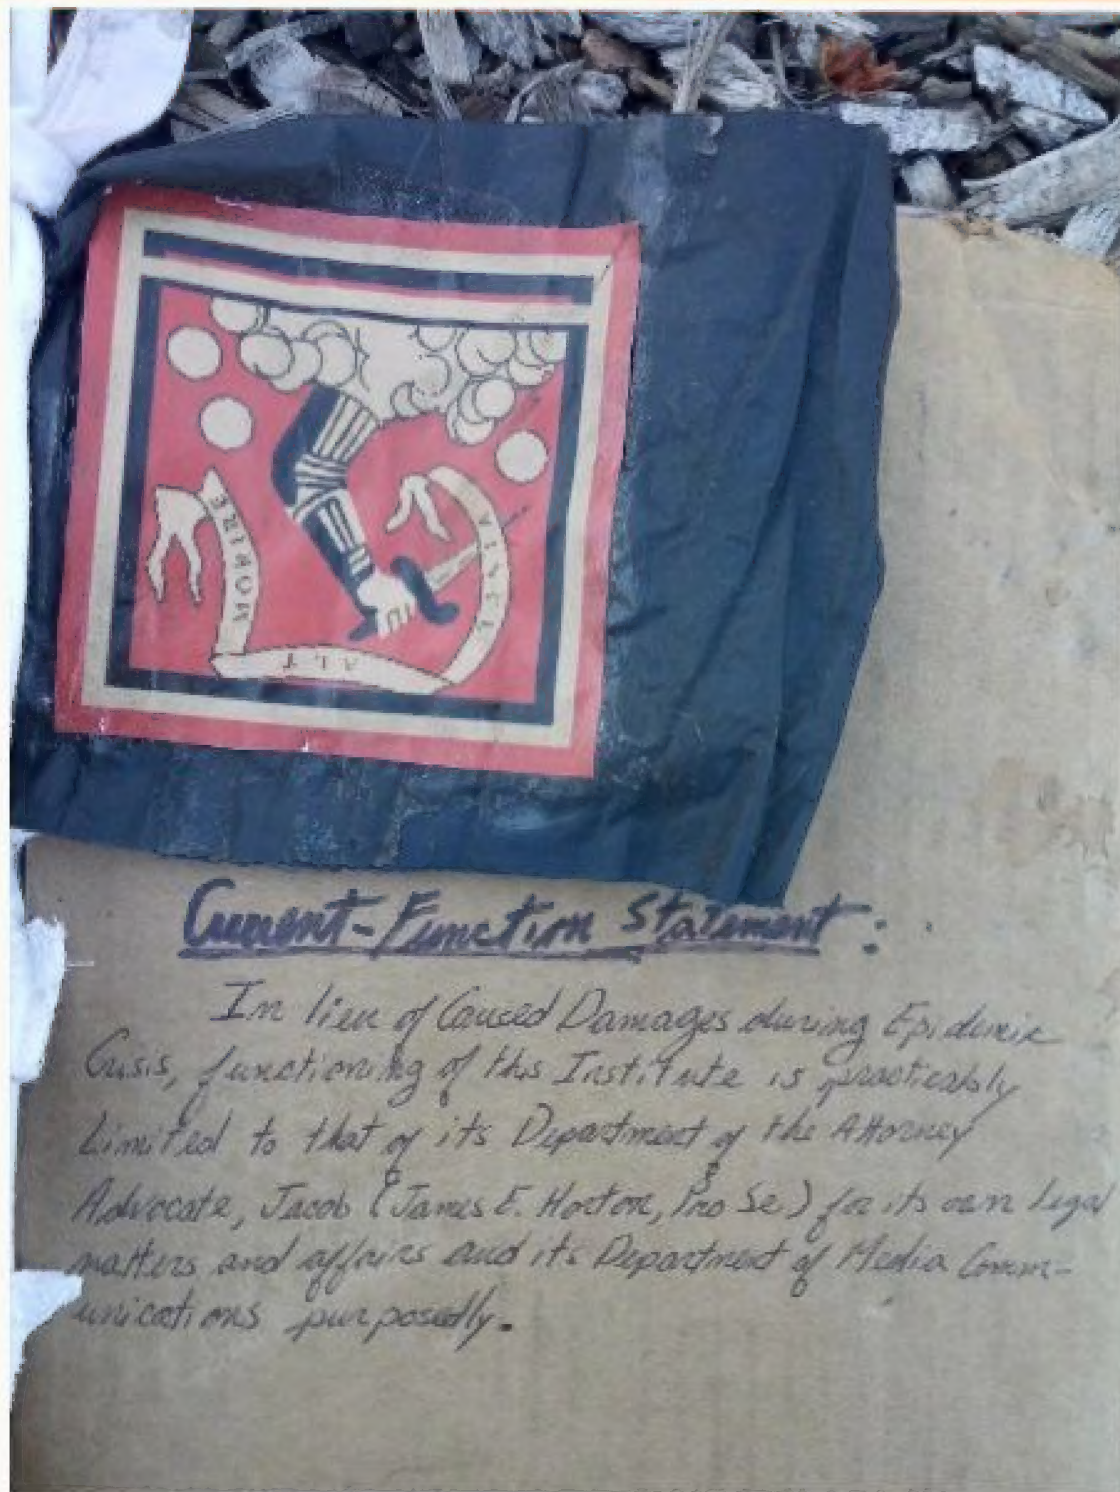 MORIRE
Current-Function Statement:
In lieu of Caused Damages during Epidemic
Crisis, functioning of this Institute is practicably
Limited to that of its Department of the Attorney
Advocate, Jacob (James E. Horton, Pro Se) for its own legal
matters and affairs and its Department of Media Comm-
unications purposedly.